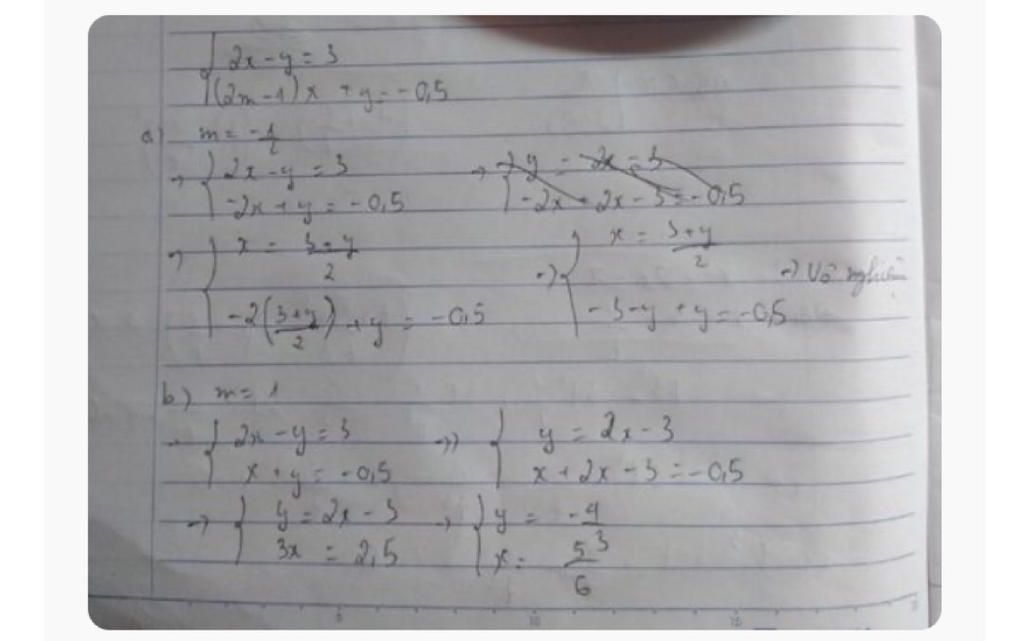 { 2x - y = 3
(2m - 1)x + y = -0,5
a) m = -1/2
→ { 2x - y = 3
-2x + y = -0,5
→ { y = 2x - 3
-2x + 2x - 3 = -0,5
→ { x = (3+y)/2
-2((3+y)/2) + y = -0,5
→ { x = (3+y)/2
-3 - y + y = -0,5
→ Vô nghiệm
b) m = 1
→ { 2x - y = 3
x + y = -0,5
→ { y = 2x - 3
x + 2x - 3 = -0,5
→ { y = 2x - 3
3x = 2,5
→ { y = -4/3
x = 5/6